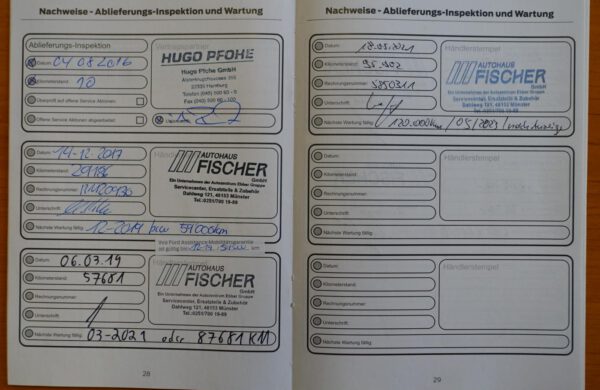 Nachweise - Ablieferungs-Inspektion und Wartung
Ablieferungs-Inspektion
Datum: 04 08 2016
Kilometerstand: 10
Überprüft auf offene Service Aktionen:
Offene Service Aktionen abgearbeitet:
HUGO PFOHE
Hugo Pfohe GmbH
Alsterkrugchaussee 355
22335 Hamburg
Telefon (040) 500 60 - 0
Fax (040) 500 60 - 100
Unterschrift:
Datum: 14-12-2017
Kilometerstand: 29186
Rechnungsnummer:
Unterschrift:
Nächste Wartung fällig: 12-2019 / bzw 59000km
AUTOHAUS
FISCHER
GmbH
Ein Unternehmen der Autozentren Elbber Gruppe
Servicecenter, Ersatzteile & Zubehör
Dahlweg 121, 48153 Münster
Tel.:0251/790 19-89
Ihre Ford Assistance Mobilitätsgarantie
ist gültig bis km
Datum: 06.03.19
Kilometerstand: 57681
Rechnungsnummer:
Unterschrift:
Nächste Wartung fällig: 03-2021 oder 87681 KM
AUTOHAUS
FISCHER
GmbH
Ein Unternehmen der Autozentren Elbber Gruppe
Servicecenter, Ersatzteile & Zubehör
Dahlweg 121, 48153 Münster
Tel.:0251/790 19-89
28
Nachweise - Ablieferungs-Inspektion und Wartung
Datum: 18.05.2021
Kilometerstand: 95.902
Rechnungsnummer: 5850311
Unterschrift:
Nächste Wartung fällig: 120.000km / 05/2023 / nach Anzeige
Händlerstempel
AUTOHAUS
FISCHER
GmbH
Servicecenter, Ersatzteile & Zubehör
Dahlweg 121, 48153 Münster
Datum:
Kilometerstand:
Rechnungsnummer:
Unterschrift:
Nächste Wartung fällig:
Händlerstempel
Datum:
Kilometerstand:
Rechnungsnummer:
Unterschrift:
Nächste Wartung fällig:
Händlerstempel
29